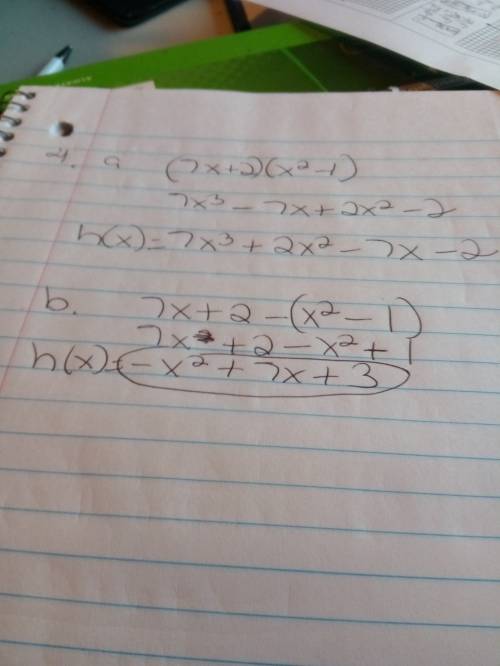 4. a (7x+2)(x²-1)
7x³ - 7x + 2x² - 2
h(x) = 7x³ + 2x² - 7x - 2
b. 7x + 2 - (x² - 1)
7x + 2 - x² + 1
h(x) = -x² + 7x + 3